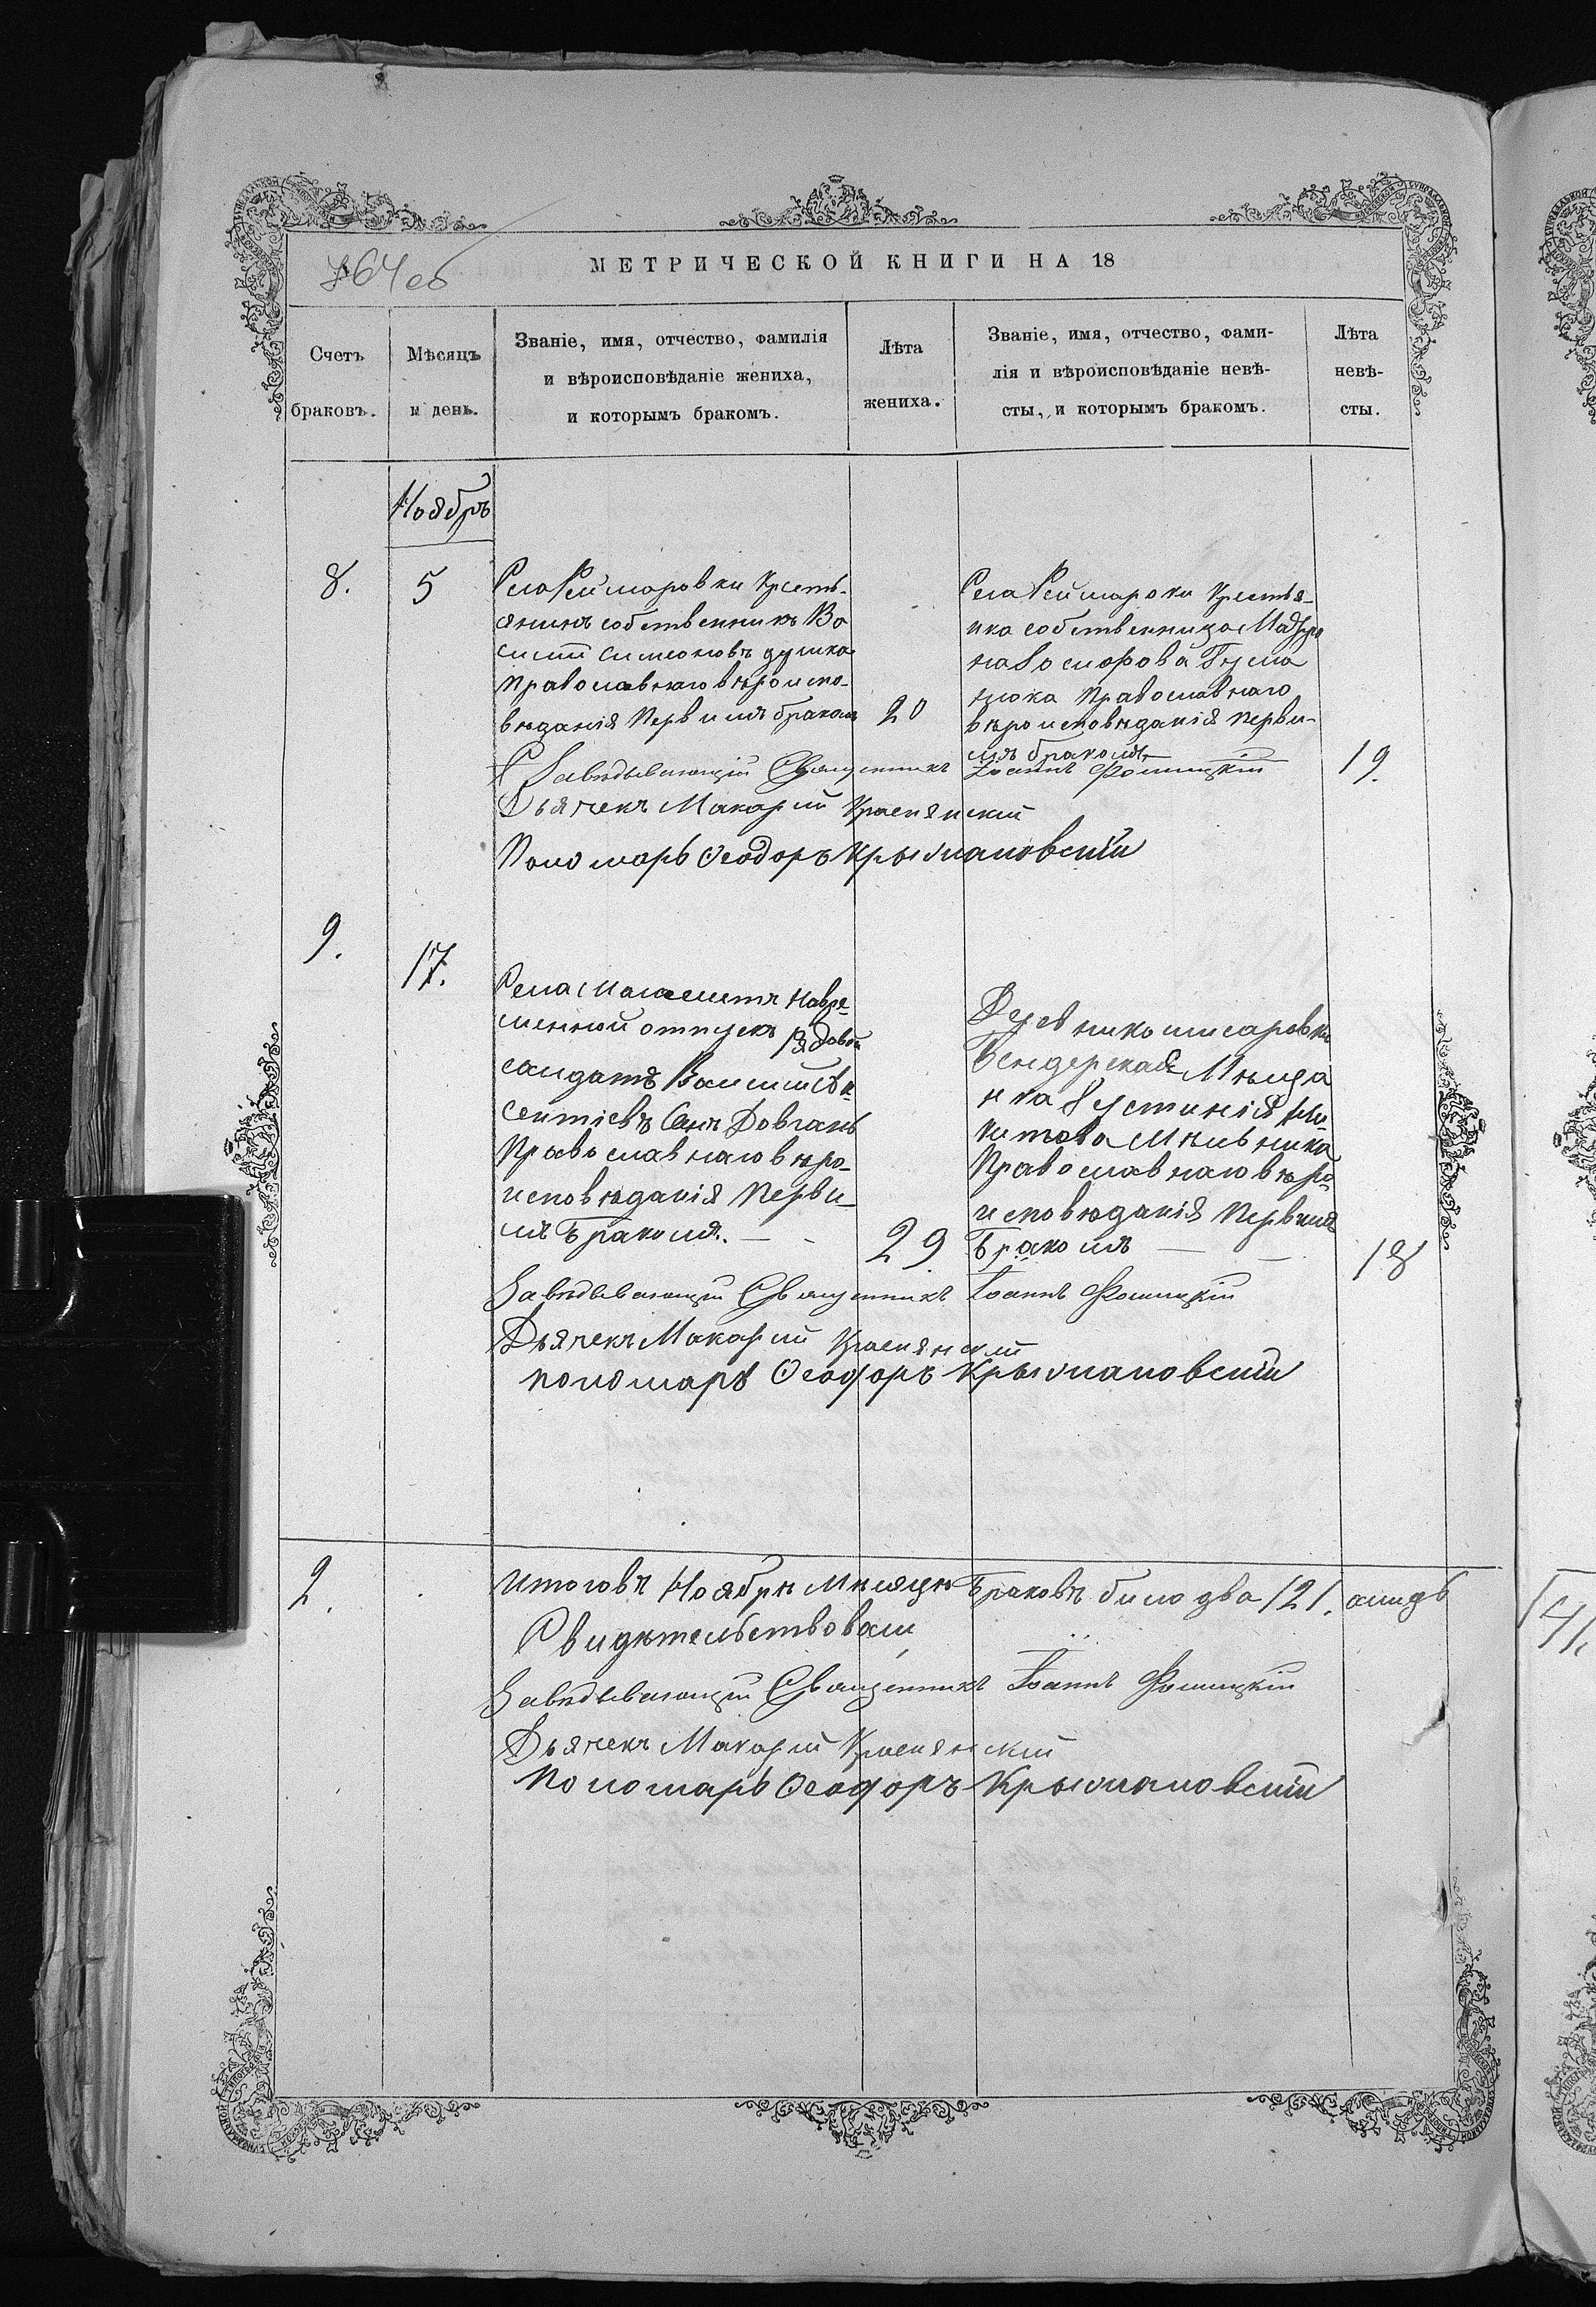 764об
МЕТРИЧЕСКОЙ КНИГИ НА 18
Счетъ браковъ.
Мѣсяцъ и день.
Званіе, имя, отчество, фамилія
и вѣроисповѣданіе жениха,
и которымъ бракомъ.
Лѣта жениха.
Званіе, имя, отчество, фами-
лія и вѣроисповѣданіе невѣ-
сты, и которымъ бракомъ.
Лѣта невѣ-
сты.
Ноябрь
8.
5
Села Реймаровки Кресть-
янинъ собственникъ Ва
силій Симеоновъ
Православнаго вѣроиспо-
вѣданія Первимъ бракомъ
20
Села Реймароки Крестья-
нка собственница
Православнаго
вѣроисповѣданія Перви-
мъ бракомъ
19.
Завѣдывающій Священникъ Іоаннъ Фомицкій
Дьячекъ Макарій
Пономарь Ѳеодоръ Крыжановскій
9.
17.
Села Малаештъ Навре-
менной отпускъ Рядовой
салдатъ Василій Ав-
сентіевъ Синъ Довгань
Православнаго вѣро-
исповѣданія Перви-
мъ Бракомъ.
29.
Бендерская Мѣща
нка Іустинія Ни-
китова Мѣльника
Православнаго вѣро-
исповѣданія Первимъ
Бракомъ
18
Завѣдывающій Священникъ Іоаннъ Фомицкій
Дьячекъ Макарій
пономарь Ѳеодоръ Крыжановскій
2.
Итоговъ Ноябрѣ Мѣсяцѣ Браковъ било два /2/.
Свидѣтельствовали
Завѣдывающій Священникъ Іоаннъ Фомицкій
Дьячекъ Макарій
Пономарь Ѳеодоръ Крыжановскій